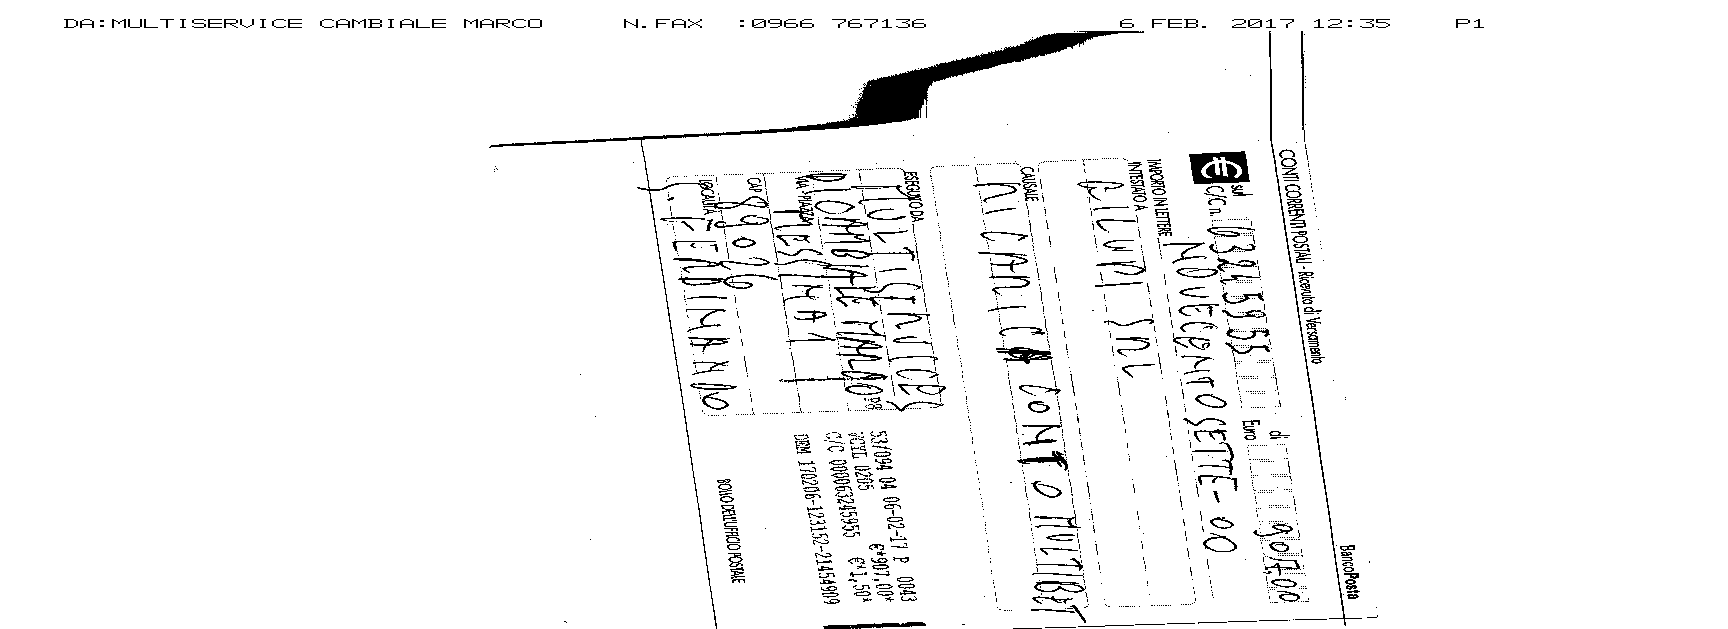 DA:MULTISERVICE CAMBIALE MARCO N.FAX :0966 767136 6 FEB. 2017 12:35 P1
CONTI CORRENTI POSTALI - Ricevuta di Versamento BancoPosta
€ sul C/C n. 63245955 di Euro 907,00
NOVECENTOSETTE-00
IMPORTO IN LETTERE
INTESTATO A
SRL
CAUSALE
RICARICA CONTO MULTIBET
ESEGUITO DA
MULTISERVICES
DI CAMBIALE MARCO
VIA - PIAZZA
MESIMA 1
CAP
89026
LOCALITÀ
S. FERDINANDO
53/094 04 06-02-17 P 0043
VCYL 0205 €*907,00*
C/C 000063245955 €*1,50*
DRM 170206-123152-21454909
BOLLO DELL'UFFICIO POSTALE